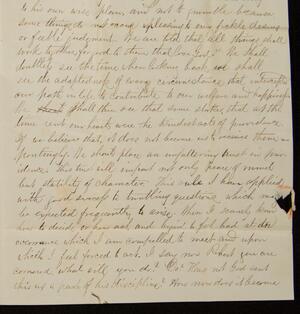 to his own wise plans, are not to grumble because
some things are not more pleasing to our fickle fancies
or feeble judgment. We are told that all things shall
work together for good to them that love God. We shall
doubtless see the time when looking back, we shall
see the adaptedness of every circumstance that
our path in life, to contribute to our welfare and happiness.
We shall then see that some strokes, that at the
time rent our hearts were the kindest acts of providence.
If we believe that, it does not become us to receive them
We should place an unfaltering trust in provi-
dence. This trust will impart not only peace of mind
but stability of character. This rule I have applied
with good success to troubling questions, which may
be expected frequently to arise. When I scarcely know
how to decide, or how act, and begin to feel bad at the
occurrence which I am compelled to meet and upon
which I feel forced to act. I say now Robert you are
cornered what will you do? Ca Has not God sent
this as a part of his discipline? How now does it become